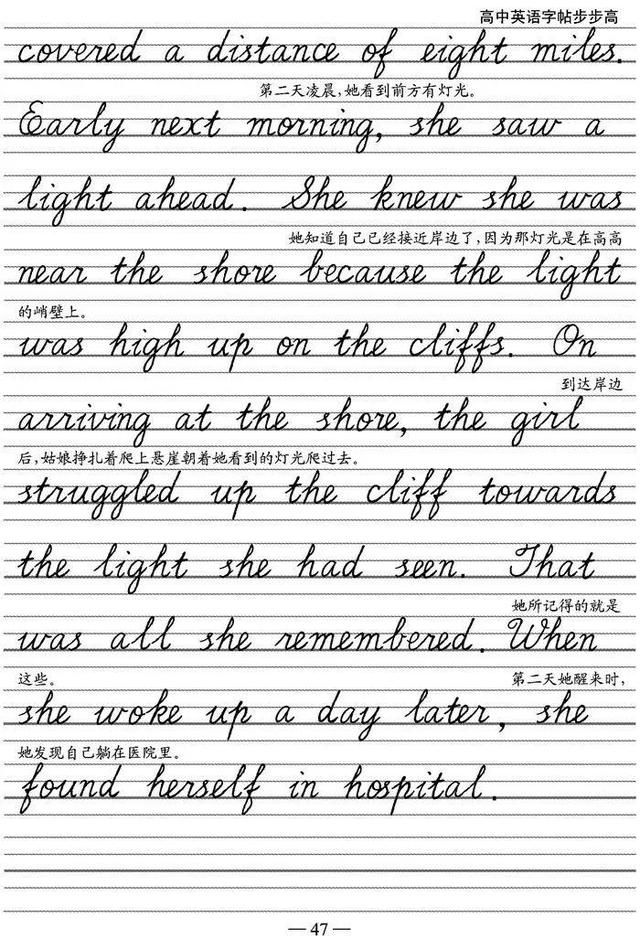 高中英语字帖步步高
covered a distance of eight miles.
第二天凌晨，她看到前方有灯光。
Early next morning, she saw a
light ahead. She knew she was
她知道自己已经接近岸边了，因为那灯光是在高高
near the shore because the light
的峭壁上。
was high up on the cliffs. On
到达岸边
arriving at the shore, the girl
后，姑娘挣扎着爬上悬崖朝着她看到的灯光爬过去。
struggled up the cliff towards
the light she had seen. That
她所记得的就是
was all she remembered. When
这些。 第二天她醒来时，
she woke up a day later, she
她发现自己躺在医院里。
found herself in hospital.
— 47 —